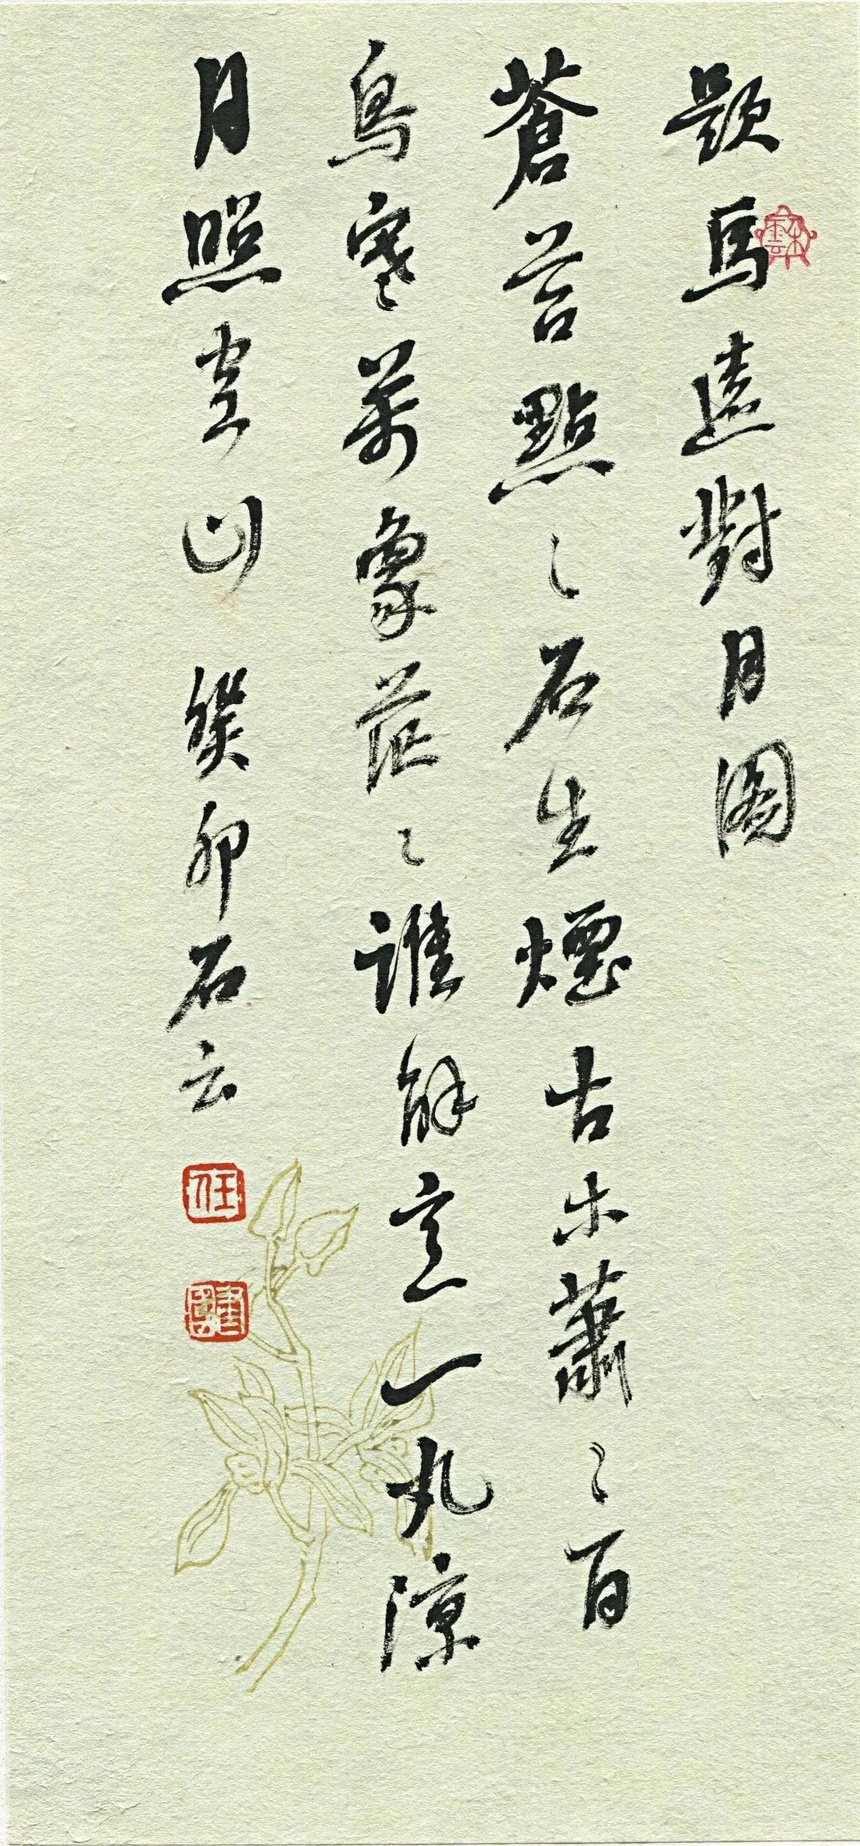 題馬遠對月圖
蒼苔點〻石生煙古木蕭〻百
鳥寒萬象茫〻誰解意一丸涼
月照空山 癸卯石云
任